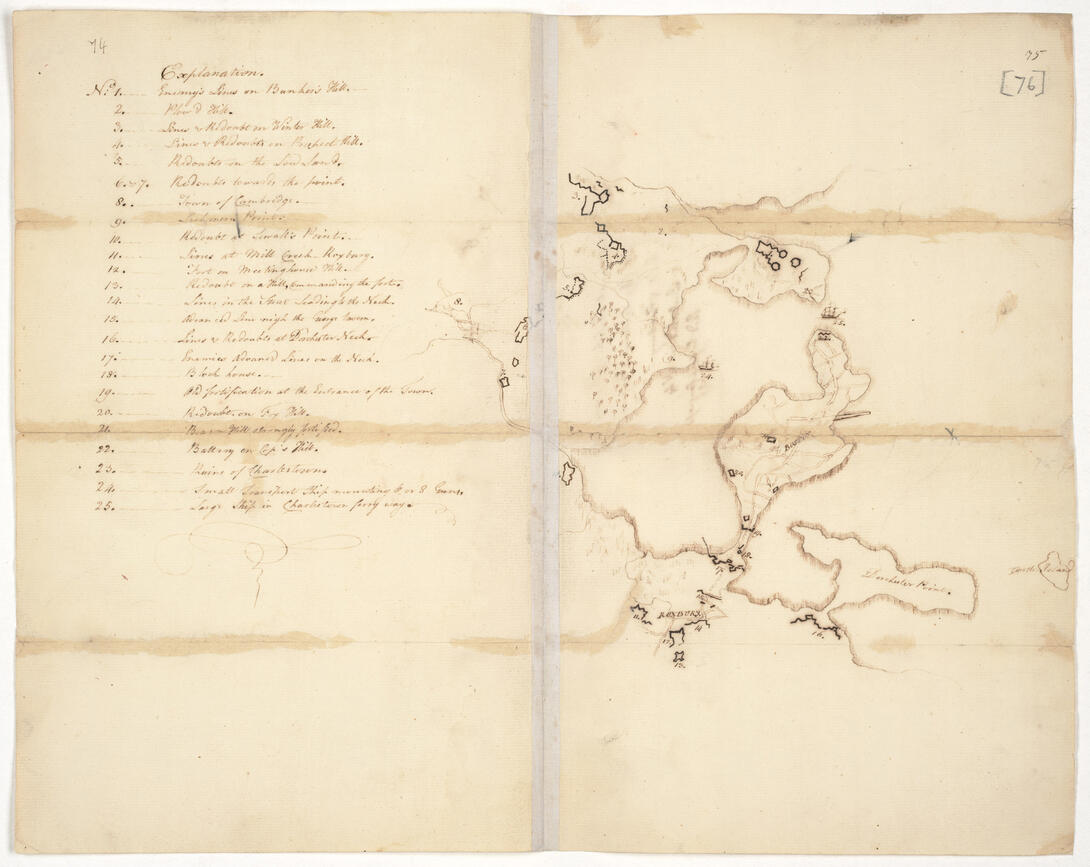 74
Explanation.
No. 1. Enemy's Lines on Bunker's Hill.
2. Plow'd Hill.
3. Lines & Redoubt on Winter Hill.
4. Lines & Redoubts on Prospect Hill.
5. Redoubts on the Low Land.
6. & 7. Redoubts towards the point.
8. Town of Cambridge.
9. Point.
10. Redoubt at Sewall's Point.
11. Lines at Mill Creek Roxbury.
12. Fort on Meetinghouse Hill.
13. Redoubt on a Hill, commanding the fort.
14. Lines in the Street Leading to the Neck.
15. Advanced Line nigh the tavern.
16. Lines & Redoubts at Dorchester Neck.
17. Enemies Advanced Lines on the Neck.
18. Block house.
19. Old fortification at the Entrance of the Town.
20. Redoubt on Fox Hill.
21. Hill strongly fortified.
22. Battery on Cop's Hill.
23. Ruins of Charlestown.
24. Small Transport Ship mounting 6, or 8 Guns.
25. Large Ship in Charlestown ferry way.
75
[76]
3.
2.
4.
8.
9.
24.
BOSTON
18.
17.
Dorchester Point.
Island
ROXBURY
14
16.
13.